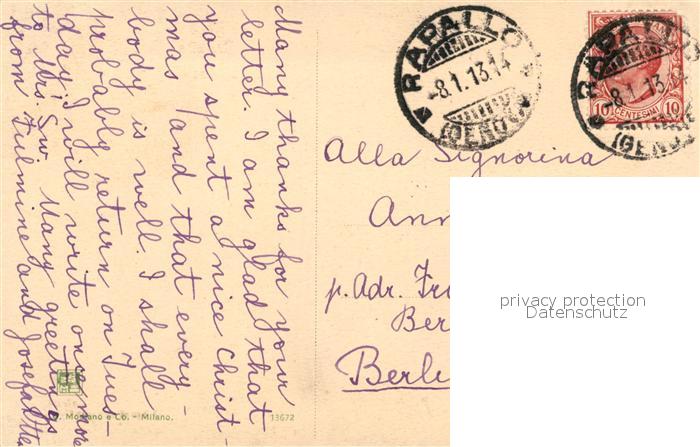 Many thanks for your
letter. I am glad that
you spent a nice Christ-
mas and that every-
body is well. I shall
probably return on Tues-
day. I will write once more
to Mrs. Many greetings
from and
RAPALLO
8.1.13.14
(GENOVA)
RAPALLO
8.1.13
(GENOVA)
10 CENTESIMI 10
Alla Signorina
Ann
p. Adr. Fr
Ber
Berli
privacy protection
Datenschutz
Milano.
13672